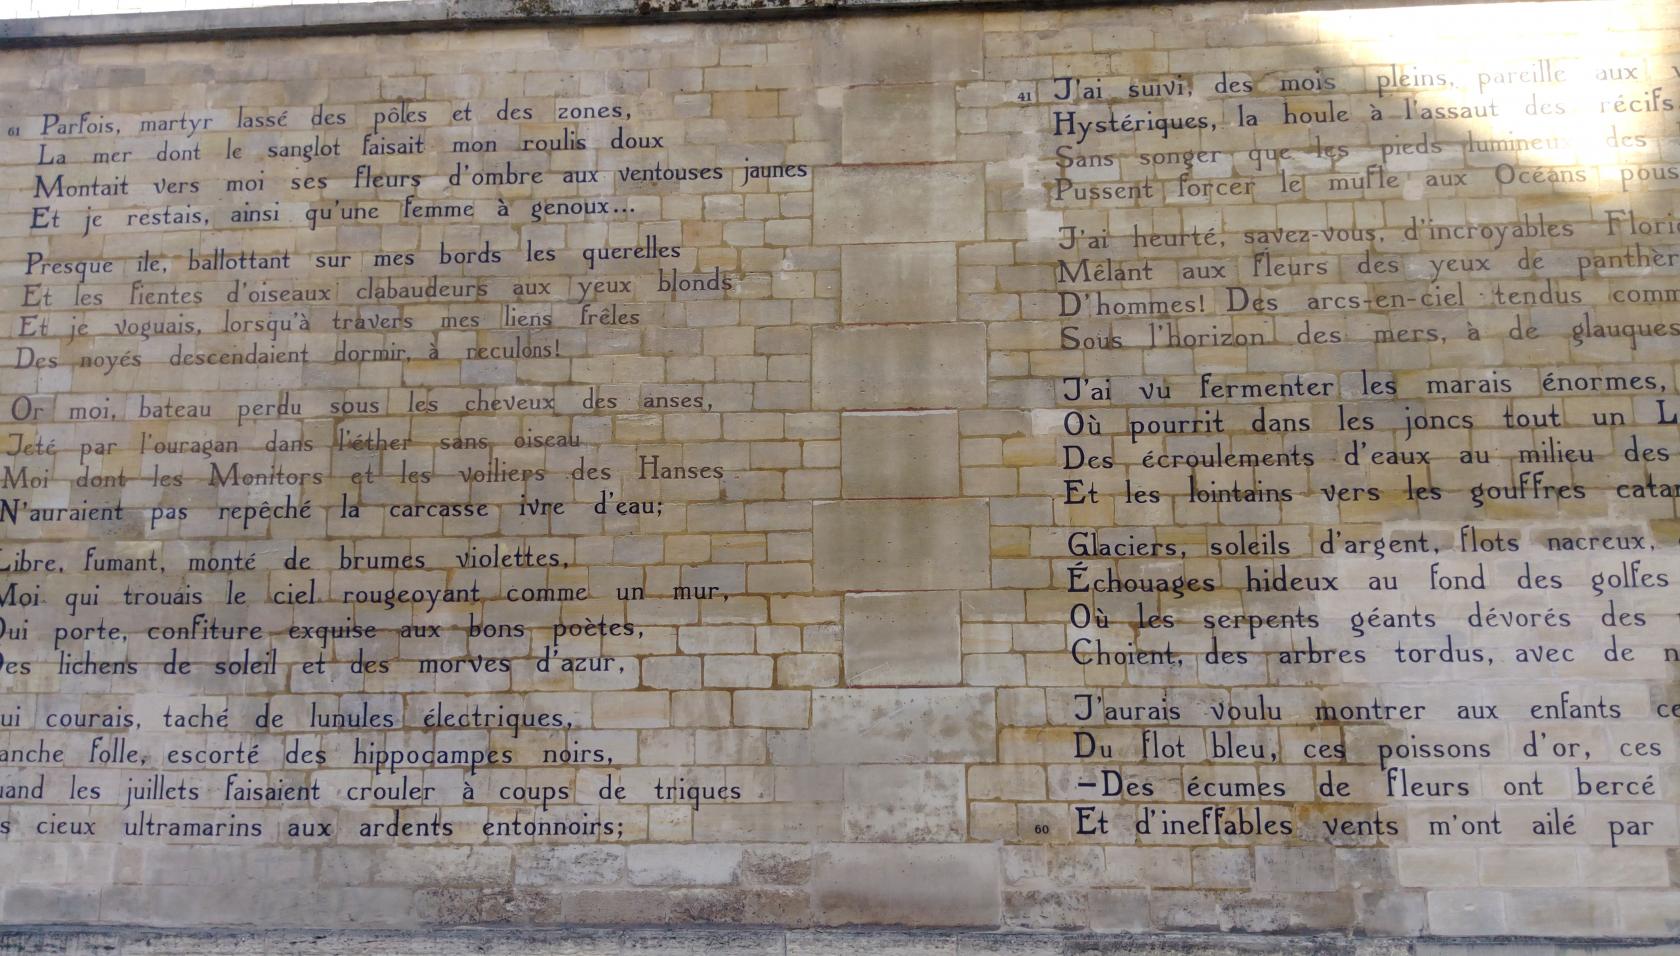 61 Parfois, martyr lassé des pôles et des zones,
La mer dont le sanglot faisait mon roulis doux
Montait vers moi ses fleurs d'ombre aux ventouses jaunes
Et je restais, ainsi qu'une femme à genoux...
Presque ile, ballottant sur mes bords les querelles
Et les fientes d'oiseaux clabaudeurs aux yeux blonds
Et je voguais, lorsqu'à travers mes liens frêles
Des noyés descendaient dormir, à reculons!
Or moi, bateau perdu sous les cheveux des anses,
Jeté par l'ouragan dans l'éther sans oiseau
Moi dont les Monitors et les voiliers des Hanses
N'auraient pas repêché la carcasse ivre d'eau;
Libre, fumant, monté de brumes violettes,
Moi qui trouais le ciel rougeoyant comme un mur,
Qui porte, confiture exquise aux bons poètes,
Des lichens de soleil et des morves d'azur,
ui courais, taché de lunules électriques,
anche folle, escorté des hippocampes noirs,
uand les juillets faisaient crouler à coups de triques
s cieux ultramarins aux ardents entonnoirs;
41 J'ai suivi, des mois pleins, pareille aux
Hystériques, la houle à l'assaut des récifs
Sans songer que les pieds lumineux des
Pussent forcer le mufle aux Océans pous
J'ai heurté, savez-vous, d'incroyables Flori
Mêlant aux fleurs des yeux de panthèr
D'hommes! Des arcs-en-ciel tendus comm
Sous l'horizon des mers, à de glauques
J'ai vu fermenter les marais énormes,
Où pourrit dans les joncs tout un L
Des écroulements d'eaux au milieu des
Et les lointains vers les gouffres catar
Glaciers, soleils d'argent, flots nacreux,
Échouages hideux au fond des golfes
Où les serpents géants dévorés des
Choient, des arbres tordus, avec de n
J'aurais voulu montrer aux enfants ce
Du flot bleu, ces poissons d'or, ces
–Des écumes de fleurs ont bercé
60 Et d'ineffables vents m'ont ailé par